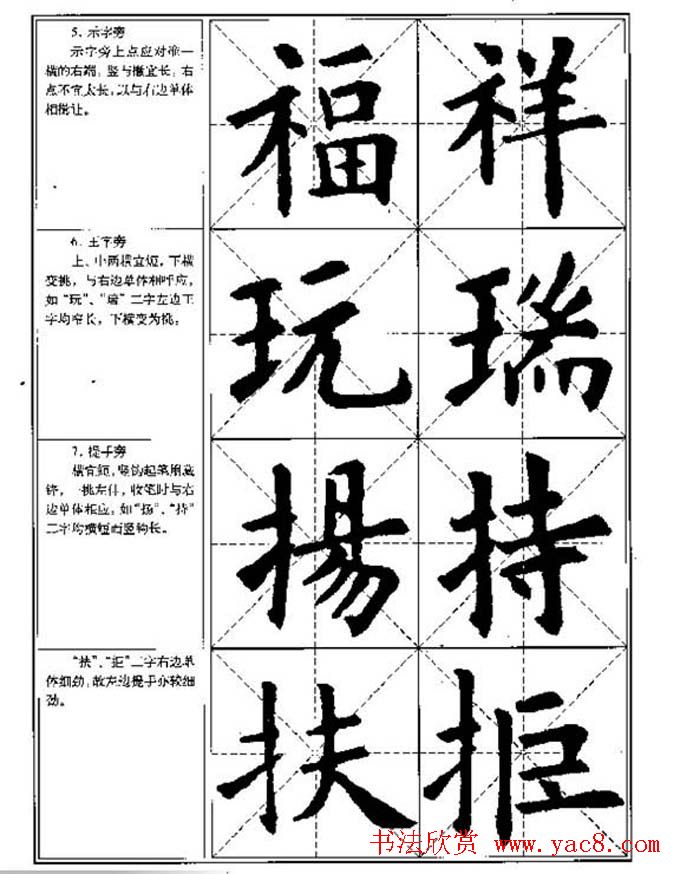 5. 示字旁
示字旁上点应对准一
横的右端,竖与撇宜长,右
点不宜太长,以与右边单体
相揖让。
福 祥
6. 王字旁
上、中两横宜短,下横
变挑,与右边单体相呼应,
如“玩”、“瑞”二字左边王
字均窄长,下横变为挑。
玩 瑞
7. 提手旁
横宜短,竖钩起笔用藏
锋,一挑左伸,收笔时与右
边单体相应。如“扬”、“持”
二字均横短而竖钩长。
揚 持
“扶”、“拒”二字右边单
体细劲,故左边提手亦较细
劲。
扶 拒
书法欣赏 www.yac8.com